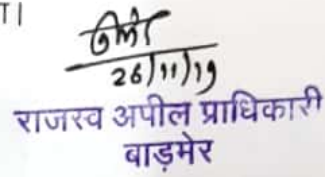 26/11/19
राजस्व अपील प्राधिकारी
बाड़मेर